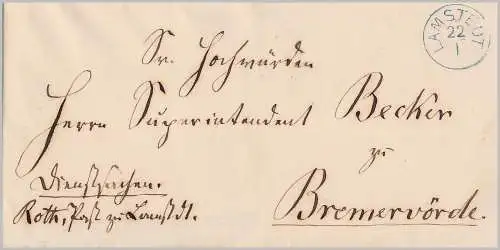 LAMSTEDT
22
1
Sr. Hochwürden
Herrn Superintendent Becker
zu
Dienstsachen.
Roth, Past. zu Lamstdt.
Bremervörde.